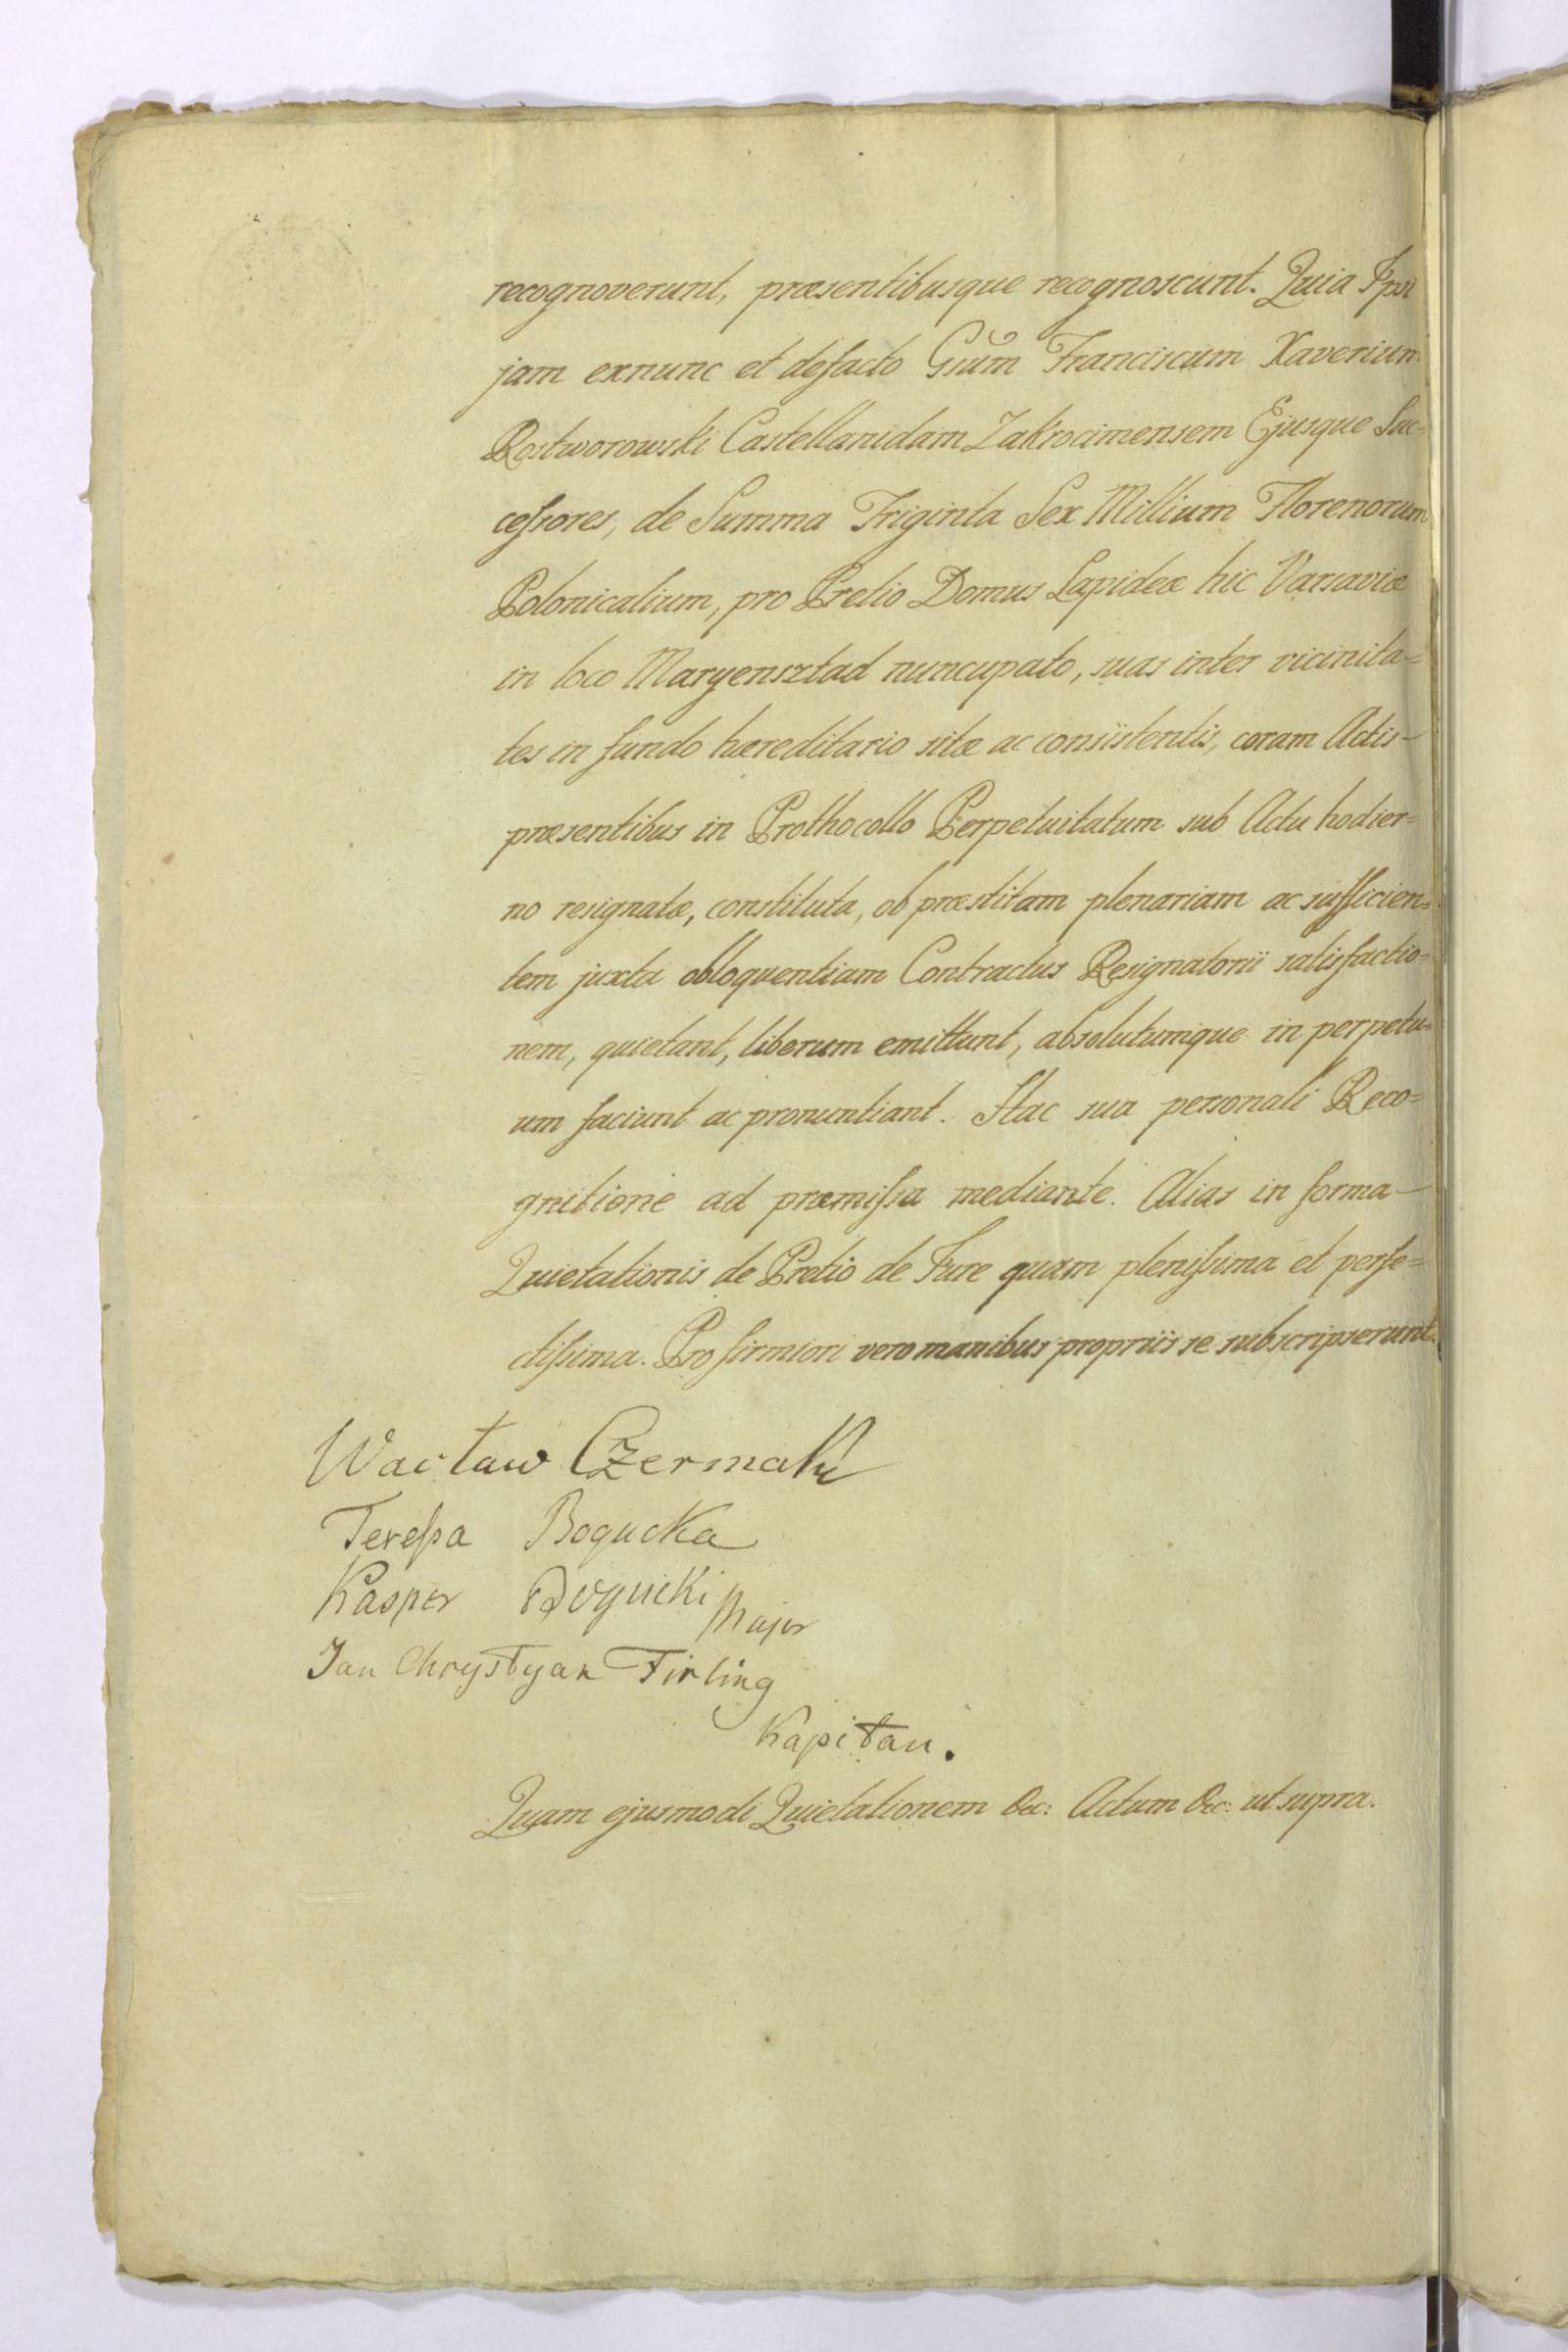 recognoverunt, præsentibusque recognoscunt. Quia Ipsi
jam exnunc et defacto Gsum Franciscum Xaverium
Rostworowski Castellanidam Zakrocimensem Ejusque Suc=
cessores, de Summa Triginta Sex Millium Florenorum
Polonicalium, pro Pretio Domus Lapideæ hic Varsaviæ
in loco Maryensztad nuncupato, suas inter vicinita=
tes in fundo hæreditario sitæ ac consistentis, coram Actis
præsentibus in Prothocollo Perpetuitatum sub Actu hodier=
no resignatæ, constituta, ob præstitam plenariam ac sufficien=
tem juxta obloquentiam Contractus Resignatorii satisfactio=
nem, quietant, liberum emittunt, absolutumque in perpetu=
um faciunt ac pronuntiant. Hac sua personali Reco=
gnitione ad præmissa mediante. Alias in forma
Quietationis de Pretio de Jure quam plenissima et perfe=
ctissima. Pro firmiori vero manibus propriis se subscripserunt.
Wacław Czermak
Teressa Bogucka
Kasper Bogucki Major
Jan Chrystyan Tirling
Kapitan.
Quam ejusmodi Quietationem &c: Actum &c: ut supra.